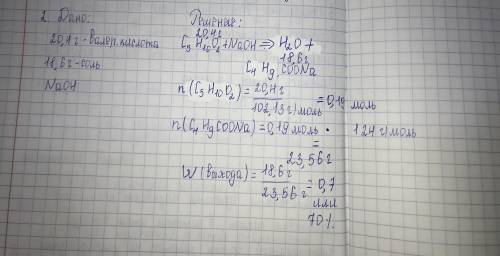 2. Дано:
20,4г - валер. кислота
18,6г - соль
NaOH
Решение:
20,4г
C5H10O2 + NaOH ⇒ H2O +
18,6г
C4H9COONa
n(C5H10O2) = 20,4г / 102,13 г/моль = 0,19 моль
n(C4H9COONa) = 0,19 моль · 124 г/моль
=
23,56г
W(выхода) = 18,6г / 23,56г = 0,7
или
70%.